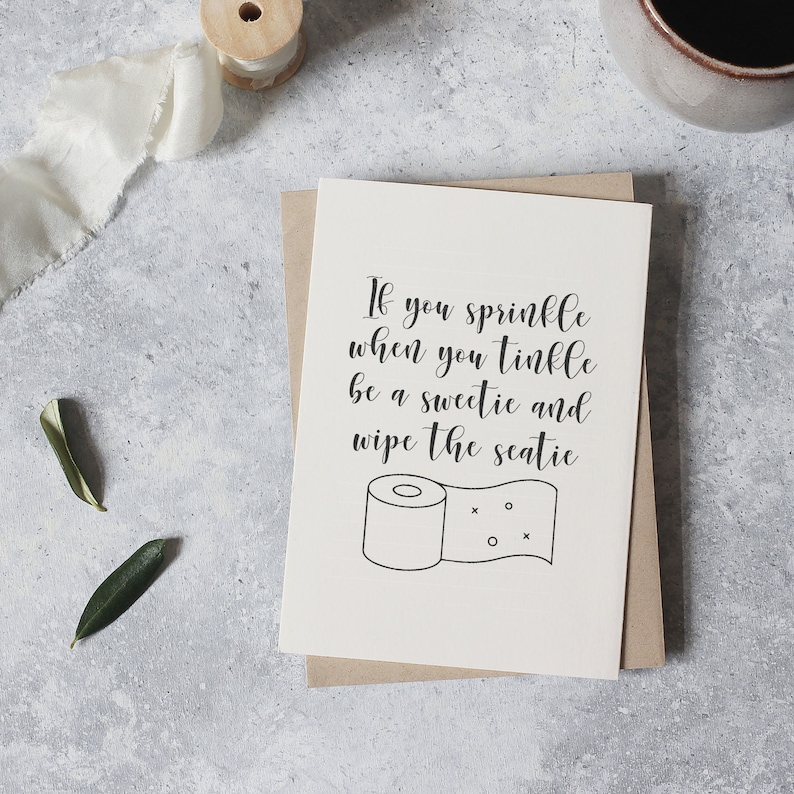 If you sprinkle
when you tinkle
be a sweetie and
wipe the seatie